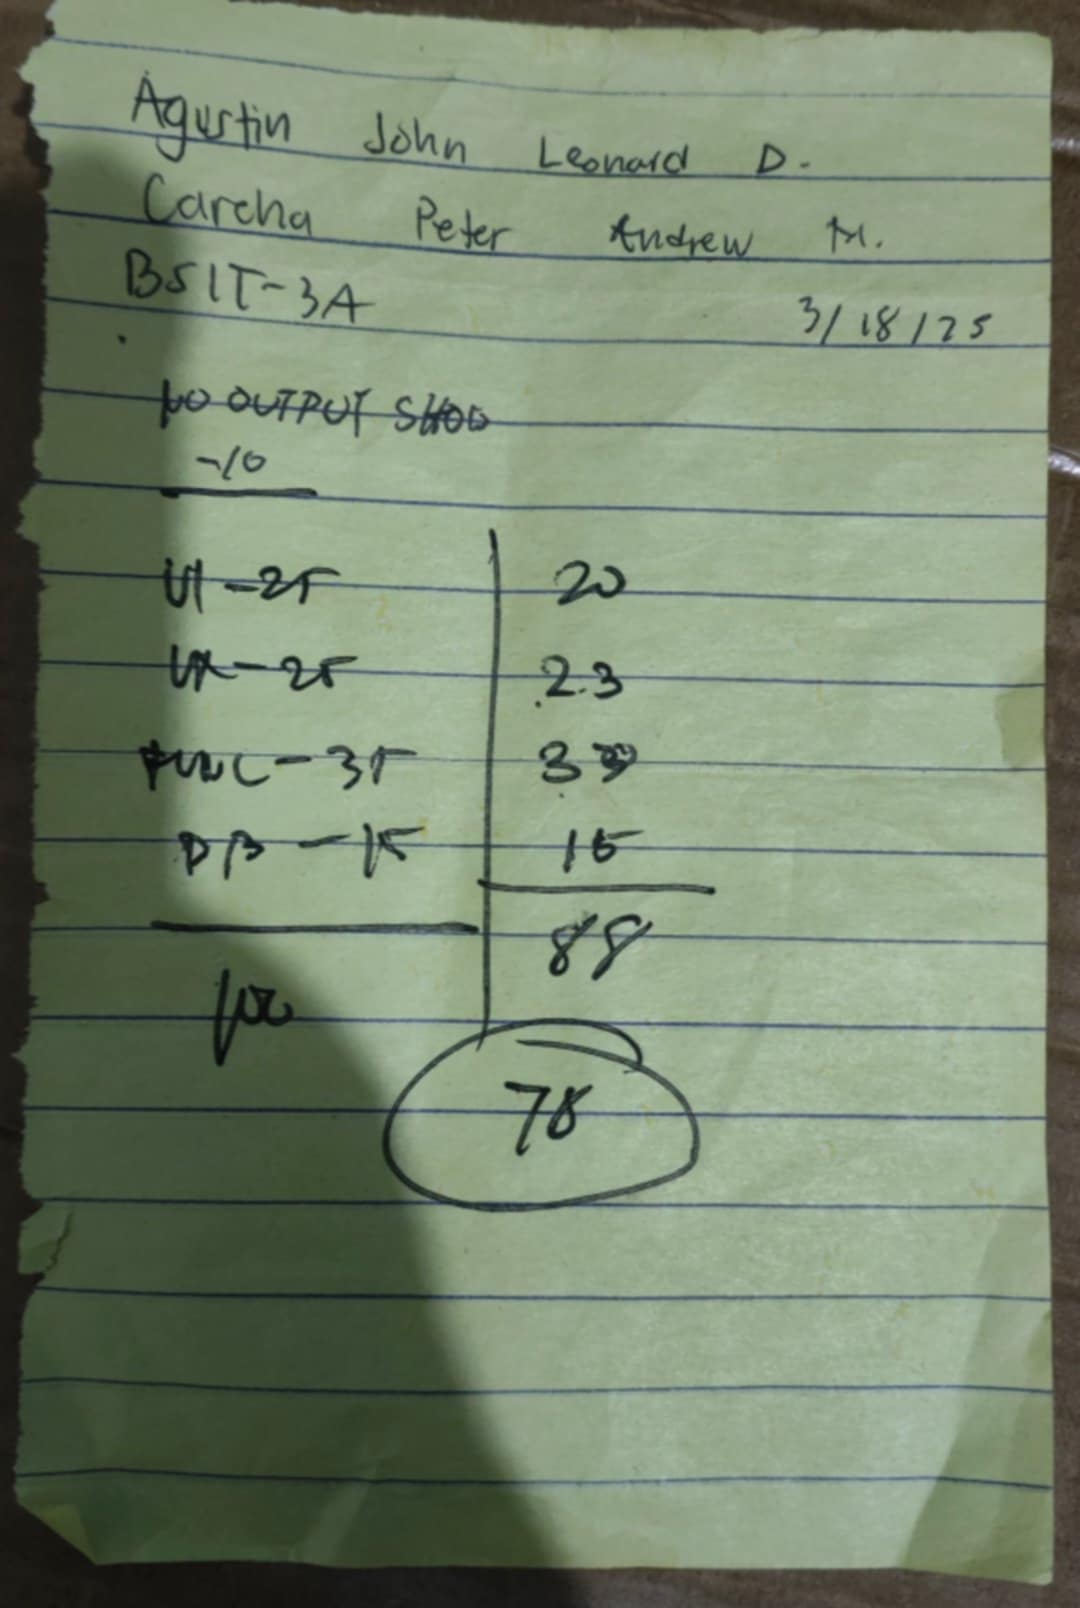 Agustin John Leonard D.
Carcha Peter Andrew M.
BSIT-3A 3/18/25
NO OUTPUT
-10
UI - 25 20
UX - 25 23
FUNC - 35
DB - 15 15
88
100
78